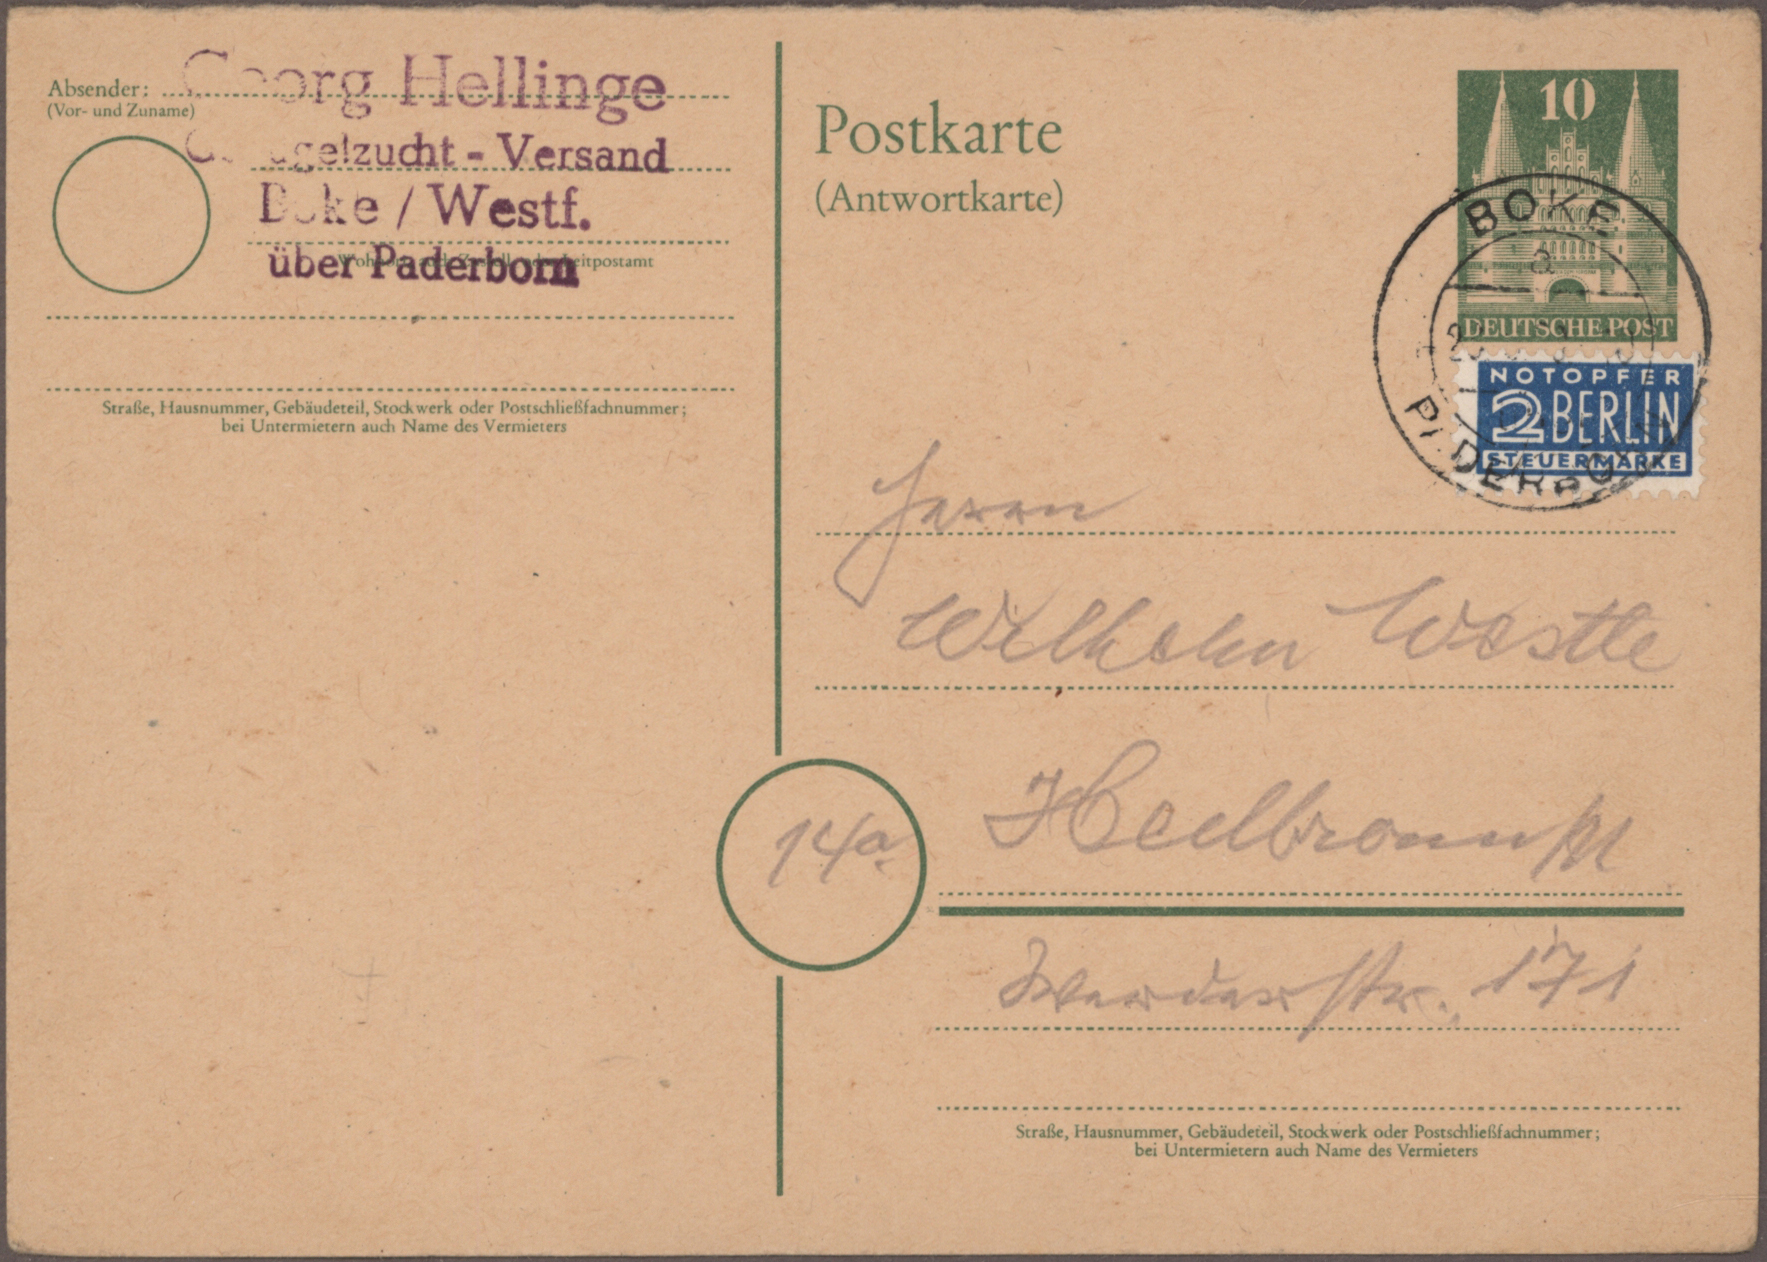 Absender:
(Vor- und Zuname)
Georg Hellinge
Geflügelzucht - Versand
Boke / Westf.
über Paderborn
Straße, Hausnummer, Gebäudeteil, Stockwerk oder Postschließfachnummer;
bei Untermietern auch Name des Vermieters
Postkarte
(Antwortkarte)
10
DEUTSCHE POST
BOKE
a
PADERBORN
NOTOPFER
2 BERLIN
STEUERMARKE
Herrn
Wilhelm Westle
14a Heilbronn
Werderstr. 171
Straße, Hausnummer, Gebäudeteil, Stockwerk oder Postschließfachnummer;
bei Untermietern auch Name des Vermieters